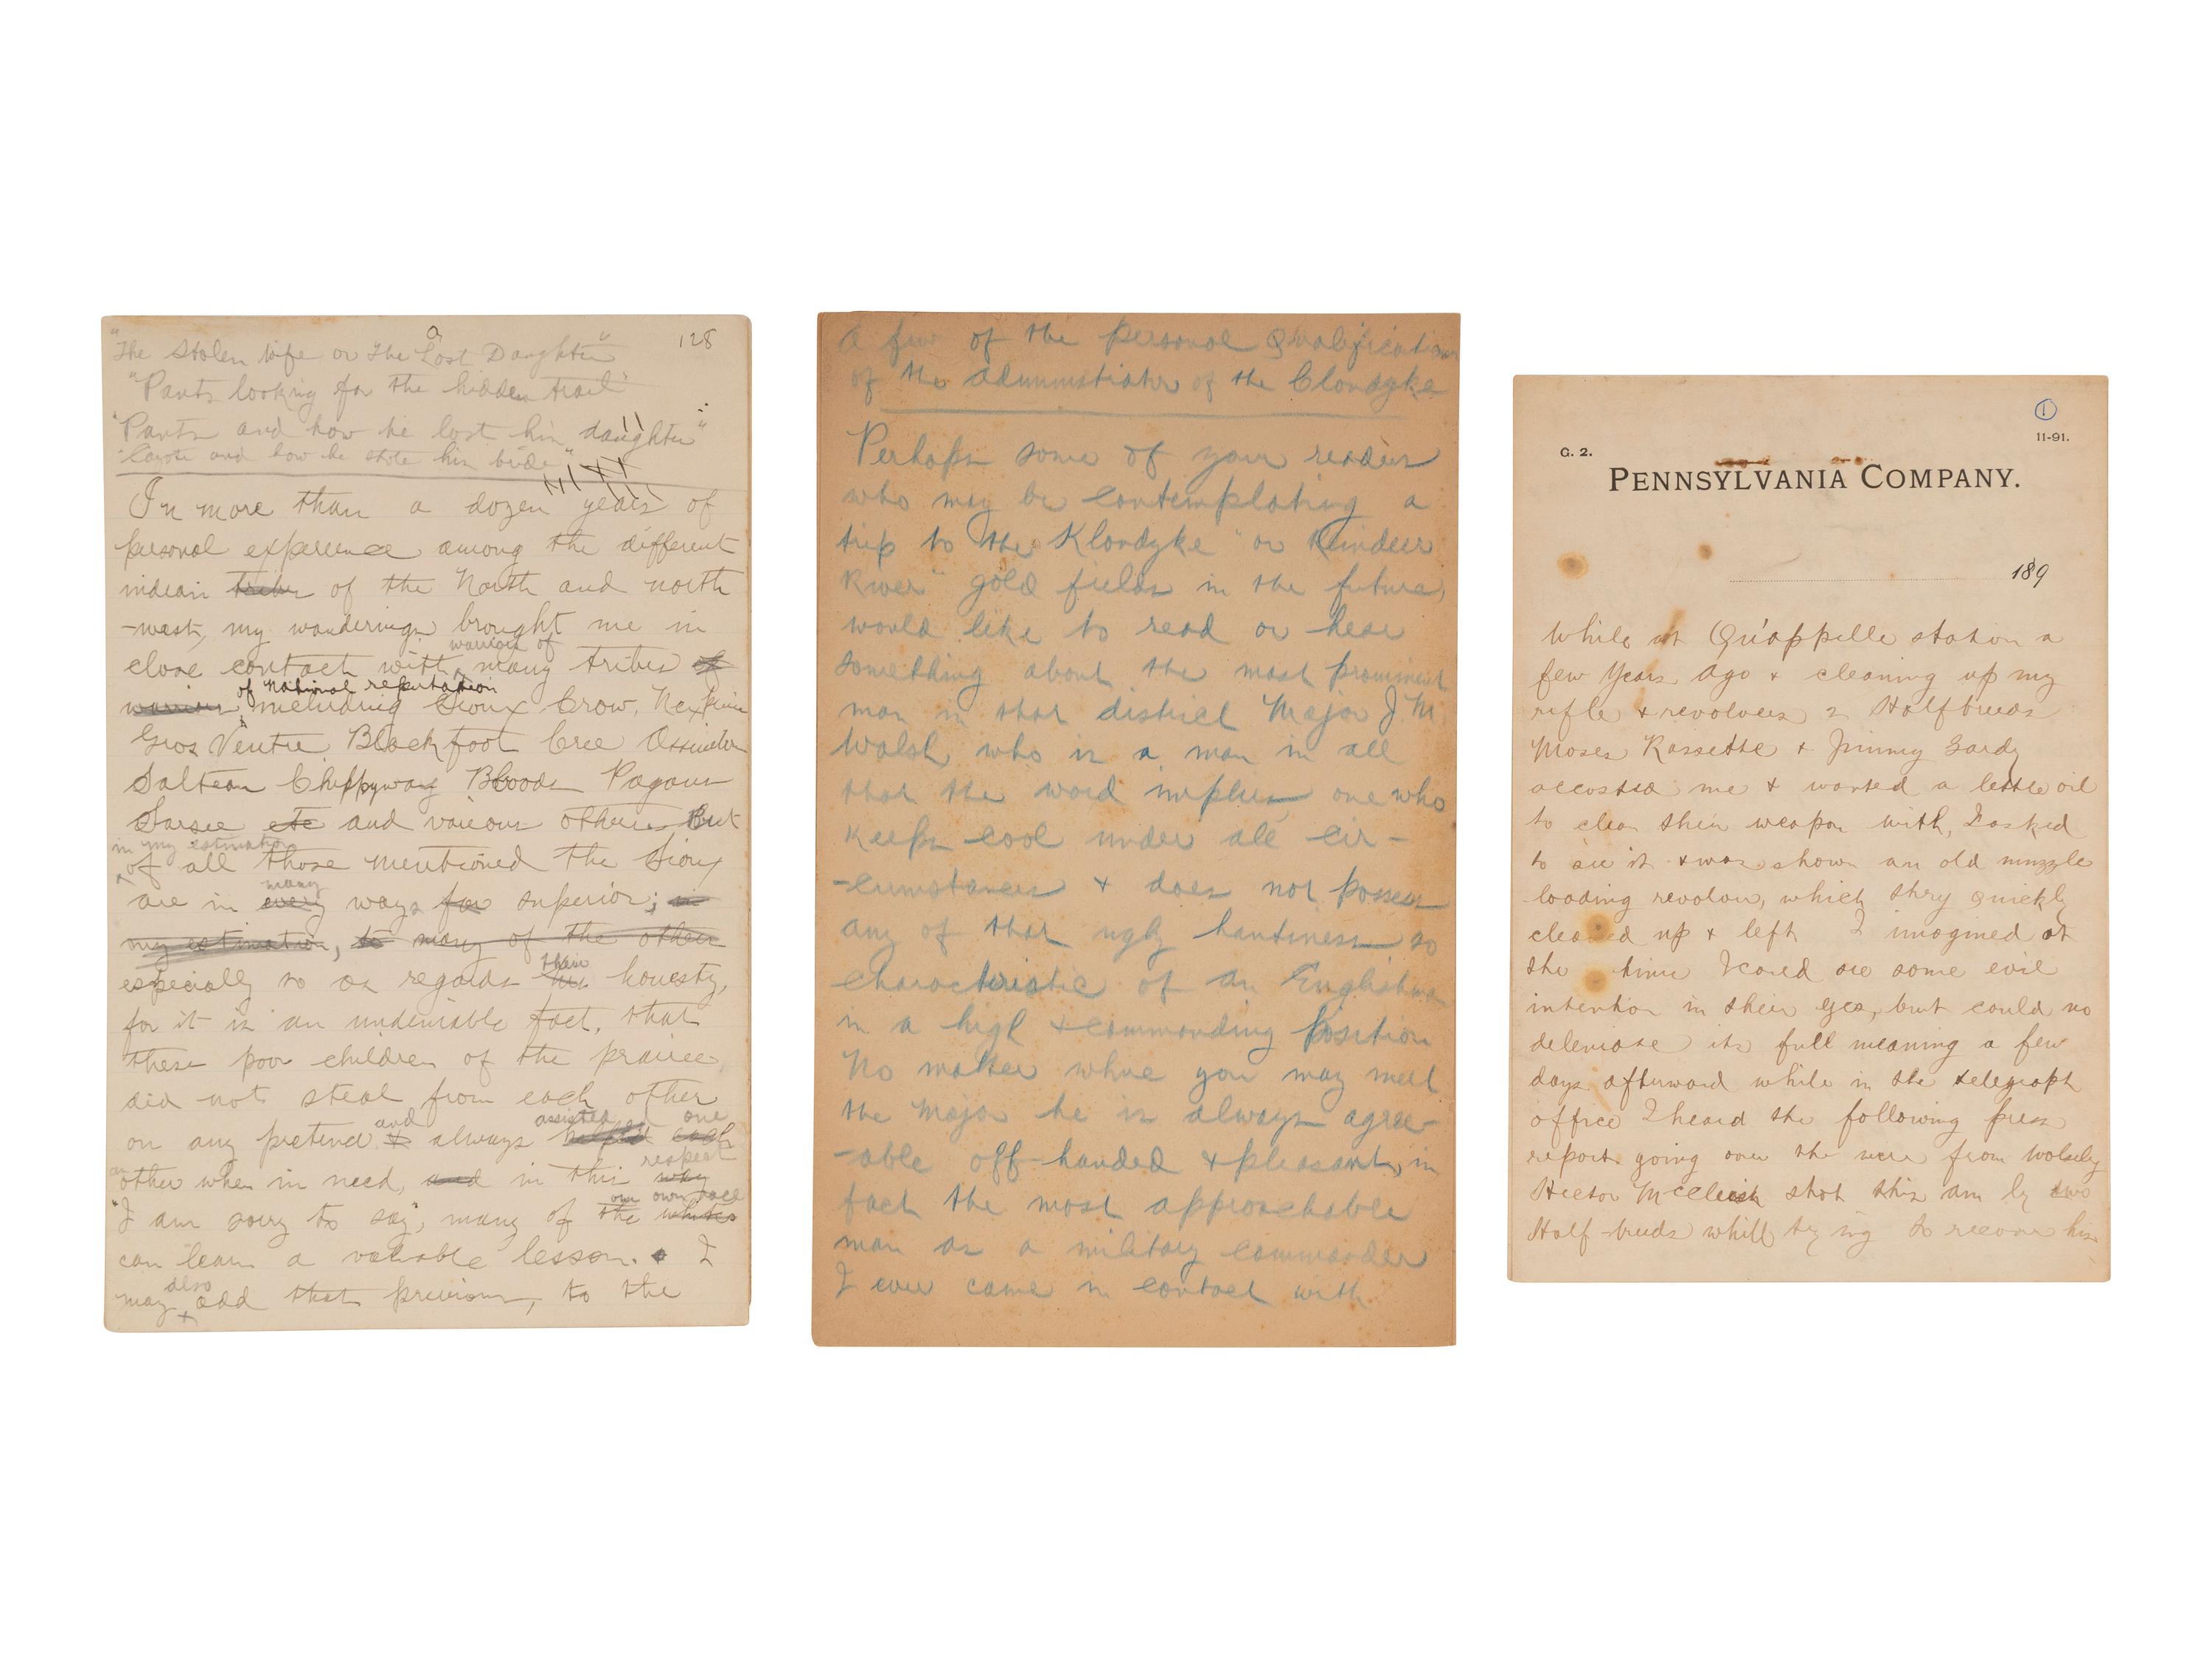 128
"The Stolen Wife or The Lost Daughter"
"Pants looking for the hidden trail"
"Pants and how he lost his daughter"
"Cayote and how he stole his bride"
In more than a dozen years of
personal experience among the different
indian tribes of the North and north
-west, my wanderings brought me in
warriors of
close contact with many tribes of
of National reputation
warriors including Sioux Crow, Nex
Gros Ventre Blackfoot Cree
Salteau Chippyway Bloods Pagans
Sarsee etc and various others But
in my estimation
of all those mentioned the Sioux
many
are in every ways far superior; in
my estimation, to many of the others
their
especially so as regards his honesty,
for it is an undeniable fact, that
these poor children of the prairie
did not steal from each other
and assisted one
on any pretend & always helped each
an respect
other when in need, and in this way
our own race
"I am sorry to say", many of the whites
can learn a valuable lesson. I
also
may add that previous, to the
A few of the personal Qualifications
of the administrator of the Clondyke
Perhaps some of your readers
who may be contemplating a
trip to the Klondyke" or Reindeer
River" gold fields in the future,
would like to read or hear
something about the most prominent
man in that district Major J. M
Walsh who is a man in all
that the word implies, one who
keeps cool under all cir-
-cumstances & does not possess
any of that ugly hautiness so
characteristic of an Englishman
in a high & commanding position
No matter where you may meet
the Major he is always agree-
-able off-handed & pleasant, in
fact the most approachable
man as a military commander
I ever came in contact with
①
11-91.
G. 2.
PENNSYLVANIA COMPANY.
189
While at Qu'appelle station a
few Years ago & cleaning up my
rifle & revolvers 2 Halfbreeds
Moses Rassette & Jimmy Gardy
accosted me & wanted a little oil
to clean their weapon with, I asked
to see it & was shown an old muzzle
-loading revolver, which they quickly
cleaned up & left I imagined at
the time I could see some evil
intention in their eyes, but could no
deleniate its full meaning a few
days afterward while in the telegraph
office I heard the following press
report going over the wire from Wolsely
Hector McCleish shot this am by two
Half-breeds whilt trying to recover his